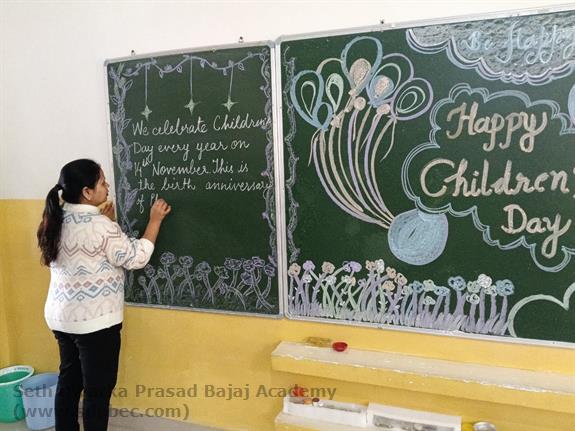 We celebrate Children's
Day every year on
14th November. This is
the birth anniversary
of P
Be Happy
Happy
Children's
Day
Prasad Bajaj Academy